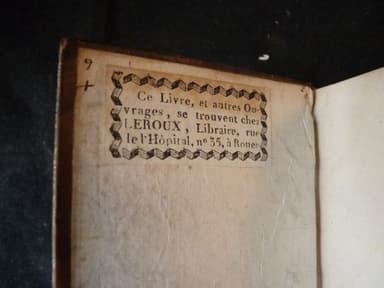 9
+
Ce Livre, et autres Ou-
vrages, se trouvent chez
LEROUX, Libraire, rue
de l'Hôpital, nº 35, à Rouen